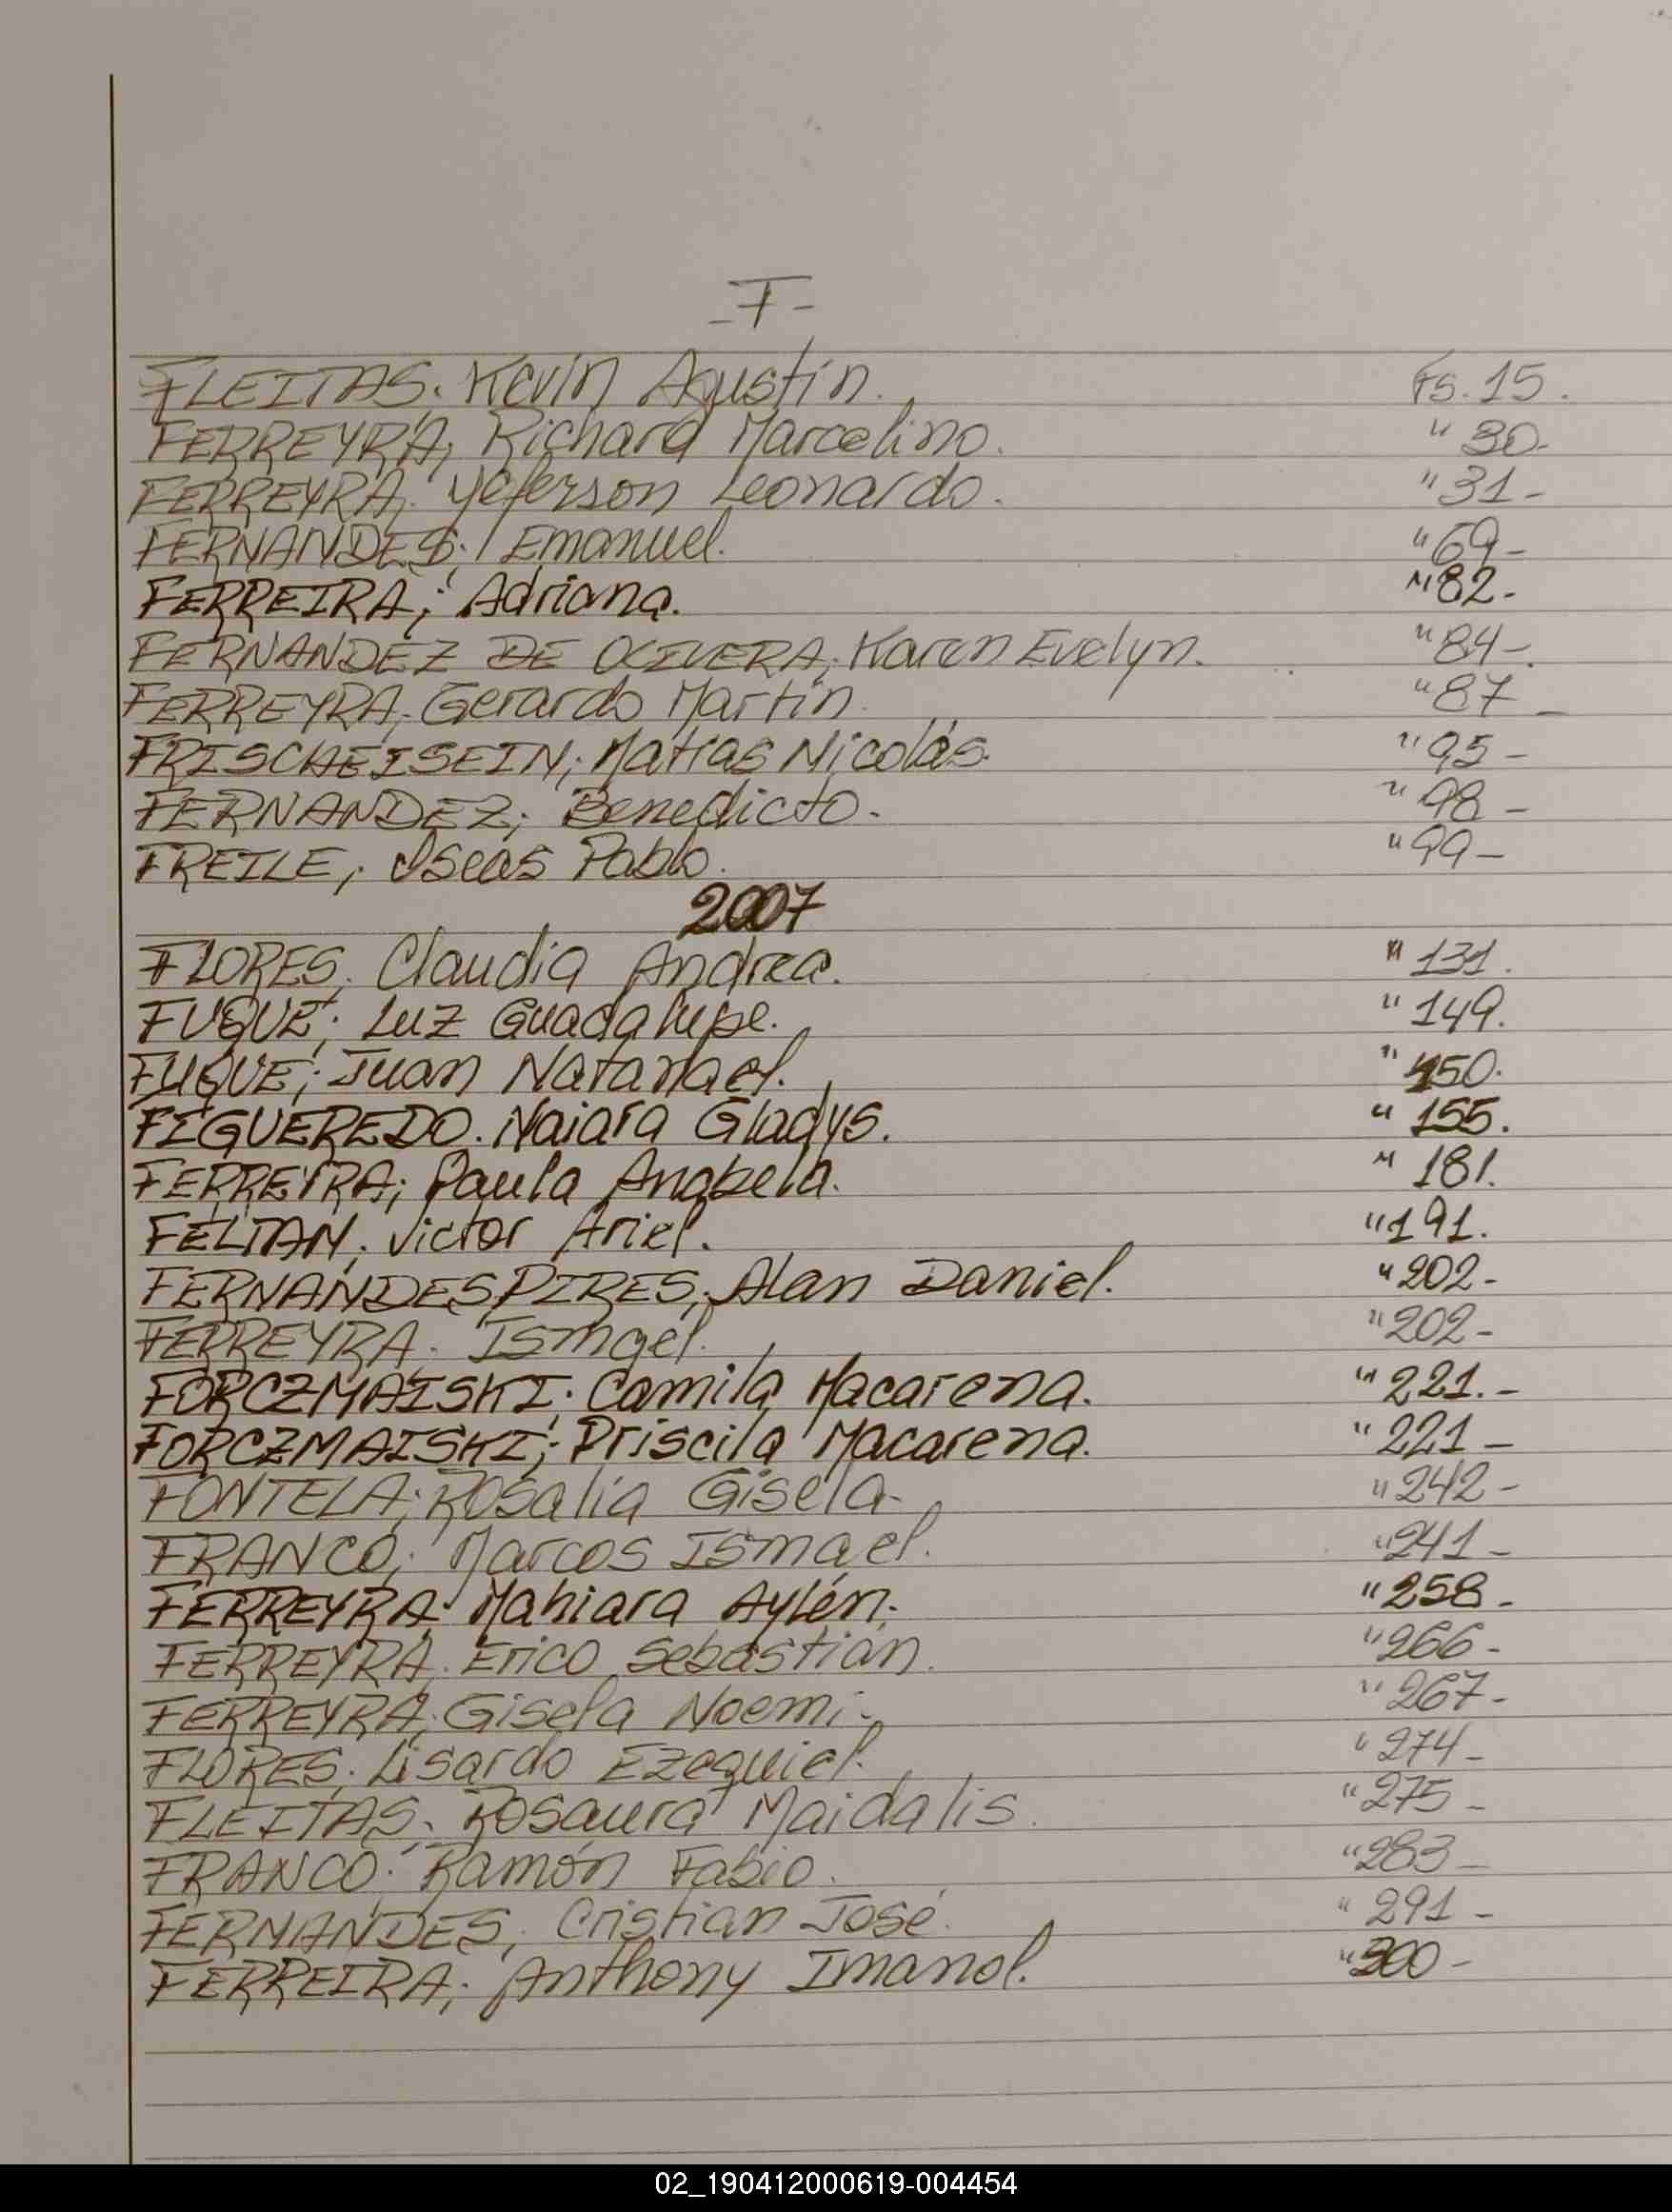 -F-
FLEITAS. Kevin Agustín. Fs. 15.
FERREYRA; Richard Marcelino. " 30-
FERREYRA; Yeferson Leonardo. " 31-
FERNANDES; Emanuel. " 69-
FERREIRA; Adriana. " 82-
FERNANDEZ DE OLIVERA; Karen Evelyn. " 84-
FERREYRA; Gerardo Martín. " 87-
FRISCHEISEIN; Matías Nicolás. " 95-
FERNANDEZ; Benedicto. " 98-
FREILE; Oseas Pablo. " 99-
2007
FLORES; Claudia Andrea. " 131.
FUQUE; Luz Guadalupe. " 149.
FUQUE; Juan Natanael. " 150.
FIGUEREDO. Naiara Gladys. " 155.
FERREYRA; Paula Anabela. " 181.
FELTAN; Victor Ariel. " 191.
FERNANDES PIRES; Alan Daniel. " 202-
FERREYRA. Ismael. " 202-
FORCZMAISKI; Camila Macarena. " 221.-
FORCZMAISKI; Priscila Macarena. " 221-
FONTELA; Rosalía Gisela- " 242-
FRANCO; Marcos Ismael. " 241-
FERREYRA; Mahiara Aylén. " 258-
FERREYRA. Erico Sebastian. " 266-
FERREYRA; Gisela Noemi- " 267-
FLORES; Lisardo Ezequiel. " 274-
FLEITAS; Rosaura Maidalis. " 275-
FRANCO; Ramón Fabio. " 283-
FERNANDES; Cristian José. " 291-
FERREIRA; Anthony Imanol. " 300-
02_190412000619-004454